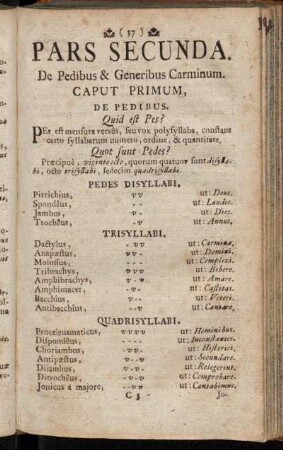 ( 37 )
PARS SECUNDA.
De Pedibus & Generibus Carminum.
CAPUT PRIMUM,
DE PEDIBUS.
Quid est Pes?
PEs, est mensura versûs, seu vox polysyllaba, constans
certo syllabarum numero, ordine, & quantitate.
Quot sunt Pedes?
Præcipuè, viginti octo, quorum quatuor sunt disylla-
bi, octo trisyllabi, sedecim quadrisyllabi.
PEDES DISYLLABI,
Pirrichius, v v ut: Deus.
Spondêus, - - ut: Laudes.
Jambus, v - ut: Dies.
Trochêus, - v ut: Annus.
TRISYLLABI.
Dactylus, - v v ut: Carmina.
Anapæstus, v v - ut: Domini.
Molossus, - - - ut: Complecti.
Tribrachys, v v v ut: Bibere.
Amphibrachys, v - v ut: Amare.
Amphimacer, - v - ut: Castitas.
Bacchius, v - - ut: Veteri.
Antibacchius, - - v ut: Cantare,
QUADRISYLLABI.
Proceleusmaticus, v v v v ut: Hominibus.
Dispondêus, - - - - ut: Inconstantes.
Choriambus, - v v - ut: Historici.
Antipæstus, v - - v ut: Secundare.
Diiambus, v - v - ut: Relegerint.
Ditrochêus, - v - v ut: Comprobare.
Jonicus á majore, - - v v ut: Cantabimus.
C 3 Jo-